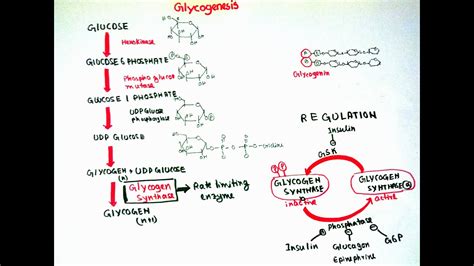 Glycogenesis
GLUCOSE
Hexokinase
GLUCOSE 6 PHOSPHATE
Phospho gluco
mutase
GLUCOSE 1 PHOSPHATE
UDP Glucose
phosphorylase
UDP GLUCOSE
Uridine
GLYCOGEN + UDP GLUCOSE
(n)
Glycogen
Synthase
Rate limiting
enzyme
GLYCOGEN
(n+1)
Glycogenin
REGULATION
Insulin
GSK
P P
GLYCOGEN
SYNTHASE
inactive
GLYCOGEN
SYNTHASE
active
Phosphatase
Insulin
Glucagon
G6P
Epinephrine